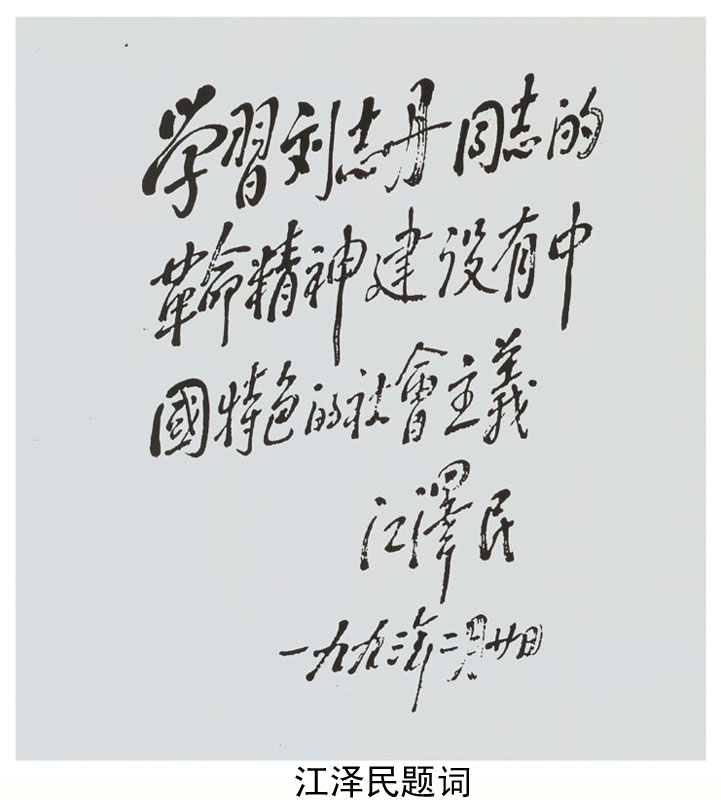 学習刘志丹同志的
革命精神建设有中
國特色的社會主義
江澤民
一九九三年二月廿日
江泽民题词